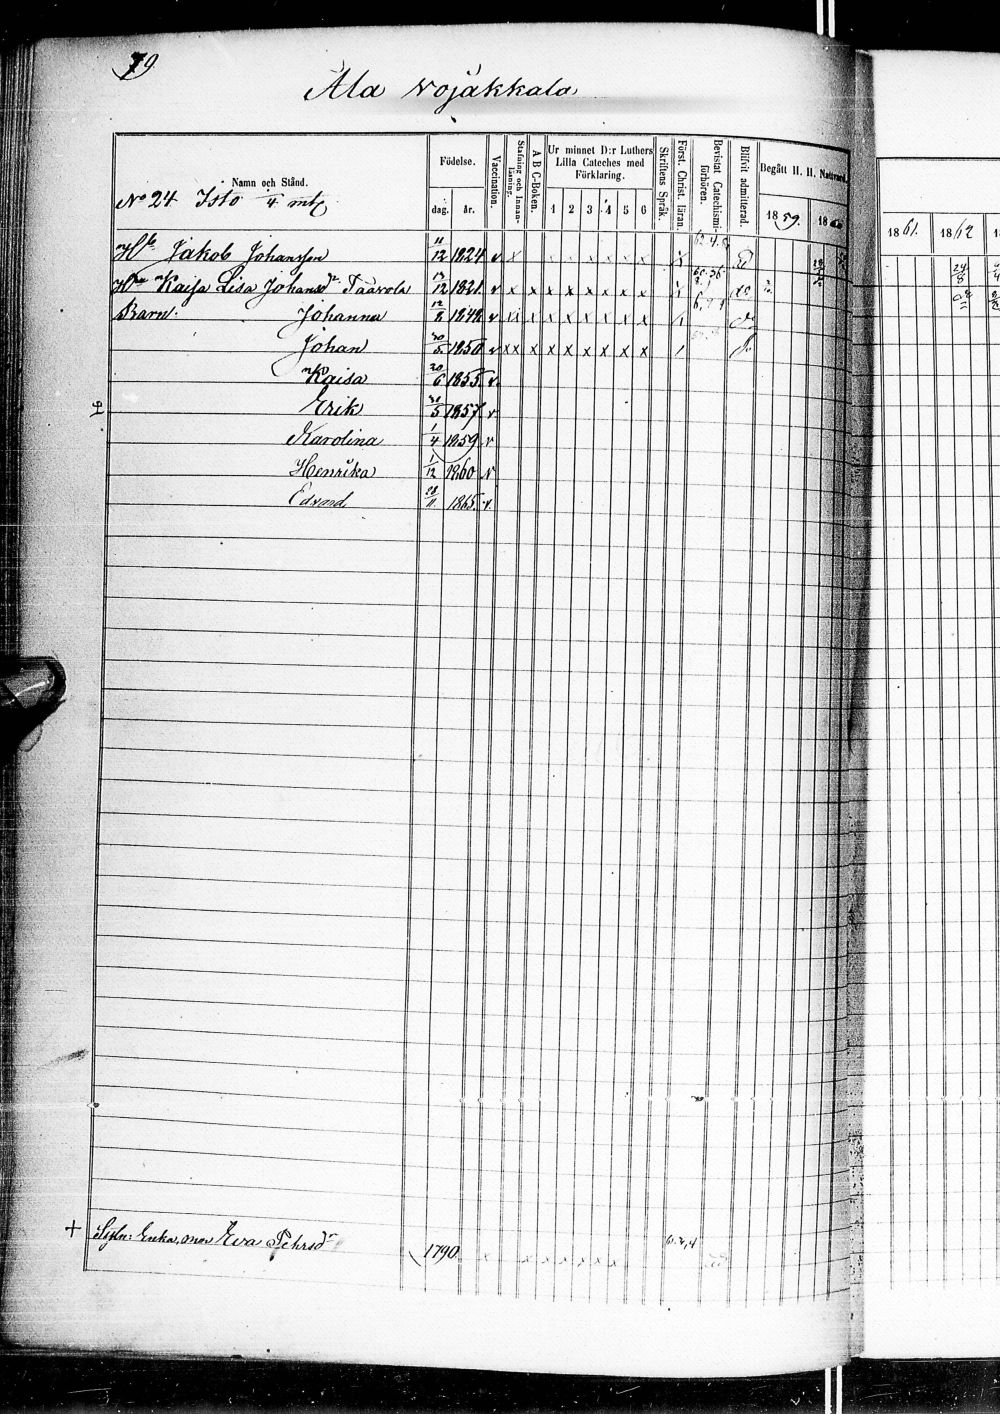 79
Ala Vojakkala
Namn och Stånd.
Födelse.
dag. år.
Vaccination.
Stafning och Innanläsning.
A B C-Boken.
Ur minnet D:r Luthers Lilla Cateches med Förklaring.
1 2 3 4 5 6
Skriftens Språk.
Först. Christ. läran.
Bevistat Catechismiförhören.
Blifvit admitterad.
Begått H. H. Nattvard.
1859. 1860 1861. 1862
No 24 Isto 1/4 mtl
Jakob Johansson 11/12 1824 v x
Kaisa Lisa Johansdr Taavola 12 1821. v x x x x x x x x
Barn. Johanna 12/8 1848 v x x x x x x x x
Johan 30/5 1850 v x x x x x x x x x
Kaisa 20/6 1855. v.
Erik 31/5 1857. v
Karolina 1/4 1859 v
Henrika 1/12 1860 v
Edvard 28/11 1865. v.
+ Enka, mor Eva Pehrsdr 1790 x x x x x x x